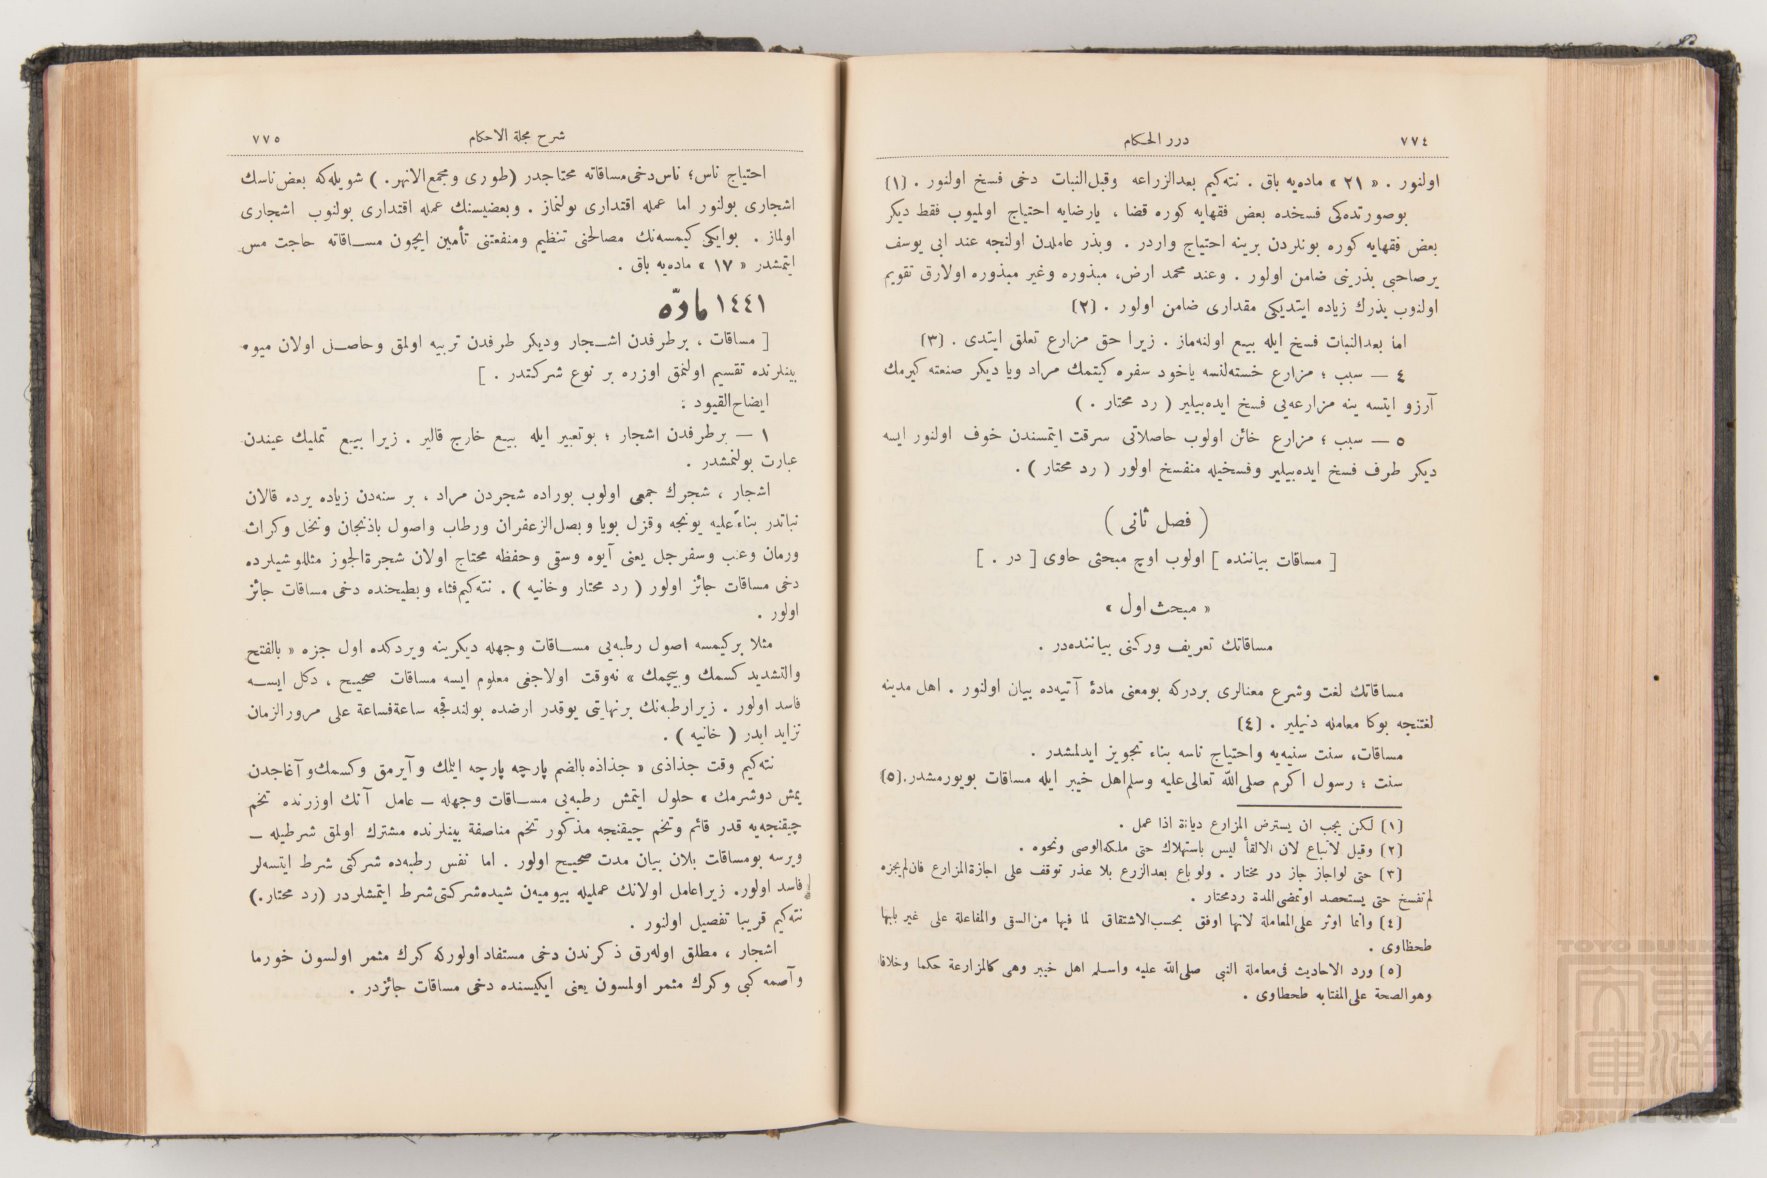 ٧٧٤ درر الحكام
اولنور . « ٢١ » ماده‌يه باق . نته‌كيم بعدالزراعه وقبل‌النبات دخى فسخ اولنور . (١)
بوصورتده‌كى فسخده بعض فقهايه كوره قضا ، يارضايه احتياج اولميوب فقط ديكر
بعض فقهايه كوره بونلردن برينه احتياج واردر . وبذر عاملدن اولنجه عند ابى يوسف
يرصاحبى بذرينى ضامن اولور . وعند محمد ارض، مبذوره وغير مبذوره اولارق تقويم
اولنوب بذرك زياده ايتديكى مقدارى ضامن اولور . (٢)
اما بعدالنبات فسخ ايله بيع اولنه‌ماز . زيرا حق مزارع تعلق ايتدى . (٣)
٤ — سبب ؛ مزارع خسته‌لنسه ياخود سفره كيتمك مراد ويا ديكر صنعته كيرمك
آرزو ايتسه ينه مزارعه‌يى فسخ ايده‌بيلير ( رد محتار . )
٥ — سبب ؛ مزارع خائن اولوب حاصلاتى سرقت ايتمسندن خوف اولنور ايسه
ديكر طرف فسخ ايده‌بيلير وفسخيله منفسخ اولور ( رد محتار ) .
( فصل ثانى )
[ مساقات بياننده ] اولوب اوچ مبحثى حاوى [ در . ]
« مبحث اول »
مساقاتك تعريف وركنى بياننده‌در .
مساقاتك لغت وشرع معنالرى بردركه بومعنى مادۀ آتيه‌ده بيان اولنور . اهل مدينه
لغتنجه بوكا معامله دنيلير . (٤)
مساقات، سنت سنيه‌يه واحتياج ناسه بناء تجويز ايدلمشدر .
سنت ؛ رسول اكرم صلى‌الله تعالى‌عليه وسلم‌اهل خيبر ايله مساقات بويورمشدر.(٥)
(١) لكن يجب ان يسترض المزارع ديانة اذا عمل .
(٢) وقيل لاتباع لان الالقأ ليس باستهلاك حتى ملكه‌الوصى ونحوه .
(٣) حتى لواجاز جاز در مختار . ولو باع بعدالزرع بلا عذر توقف على اجازةالمزارع فان‌لم‌يجزه
لم‌تفسخ حتى يستحصد اوتمضى‌المدة ردمحتار .
(٤) وانما اوثر على‌المعاملة لانها اوفق بحسب‌الاشتقاق لما فيها من‌السقى والمفاعلة على غير بابها
طحطاوى .
(٥) ورد الاحاديث فى‌معاملة النبى صلى‌الله عليه واسلم اهل خيبر وهى كالمزارعة حكما وخلافا
وهوالصحة على‌المفتابه طحطاوى .
شرح مجلة الاحكام ٧٧٥
احتياج ناس؛ ناس‌دخى‌مساقاته محتاجدر (طورى ومجمع‌الانهر. ) شويله‌كه بعض‌ناسك
اشجارى بولنور اما عمله اقتدارى بولنماز . وبعضيسنك عمله اقتدارى بولنوب اشجارى
اولماز . بوايكى كيمسه‌نك مصالحنى تنظيم ومنفعتنى تأمين ايچون مساقاته حاجت مس
ايتمشدر « ١٧ » ماده‌يه باق .
١٤٤١ مادّه
[ مساقات ، برطرفدن اشجار وديكر طرفدن تربيه اولمق وحاصل اولان ميوه
بينلرنده تقسيم اولنمق اوزره بر نوع شركتدر . ]
ايضاح‌القيود :
١ — برطرفدن اشجار ؛ بوتعبير ايله بيع خارج قالير . زيرا بيع تمليك عيندن
عبارت بولنمشدر .
اشجار ، شجرك جمعى اولوب بوراده شجردن مراد ، بر سنه‌دن زياده يرده قالان
نباتدر بناءً عليه يونجه وقزل بويا وبصل‌الزعفران ورطاب واصول باذنجان ونخل وكراث
ورمان وعنب وسفرجل يعنى آيوه وسقى وحفظه محتاج اولان شجرةالجوز مثللو شيلرده
دخى مساقات جائز اولور ( رد محتار وخانيه ) . نته‌كيم‌قثاء وبطيخنده دخى مساقات جائز
اولور .
مثلا بركيمسه اصول رطبه‌يى مساقات وجهله ديكرينه ويردكده اول جزه « بالفتح
والتشديد كسمك وبيچمك » نه‌وقت اولاجغى معلوم ايسه مساقات صحيح ، دكل ايسه
فاسد اولور . زيرارطبه‌نك برنهايتى يوقدر ارضده بولندقجه ساعةفساعة على مرورالزمان
تزايد ايدر ( خانيه ) .
نته‌كيم وقت جذاذى « جذاذه‌بالضم پارچه پارچه ايتلك وآيرمق وكسمك‌وآغاجدن
يمش دوشرمك » حلول ايتمش رطبه‌يى مساقات وجهله — عامل آنك اوزرنده تخم
چيقنجه‌يه قدر قائم وتخم چيقنجه مذكور تخم مناصفة بينلرنده مشترك اولمق شرطيله —
ويرسه بومساقات بلان بيان مدت صحيح اولور . اما نفس رطبه‌ده شركتى شرط ايتسه‌لر
فاسد اولور. زيراعامل اولانك عمليله بيوميه‌ن شيده‌شركتى‌شرط ايتمشلردر (رد محتار.)
نته‌كيم قريبا تفصيل اولنور .
اشجار ، مطلق اوله‌رق ذكرندن دخى مستفاد اولورکه كرك مثمر اولسون خورما
وآصمه كبى وكرك مثمر اولمسون يعنى ايكيسنده دخى مساقات جائزدر .
TOYO BUNKO